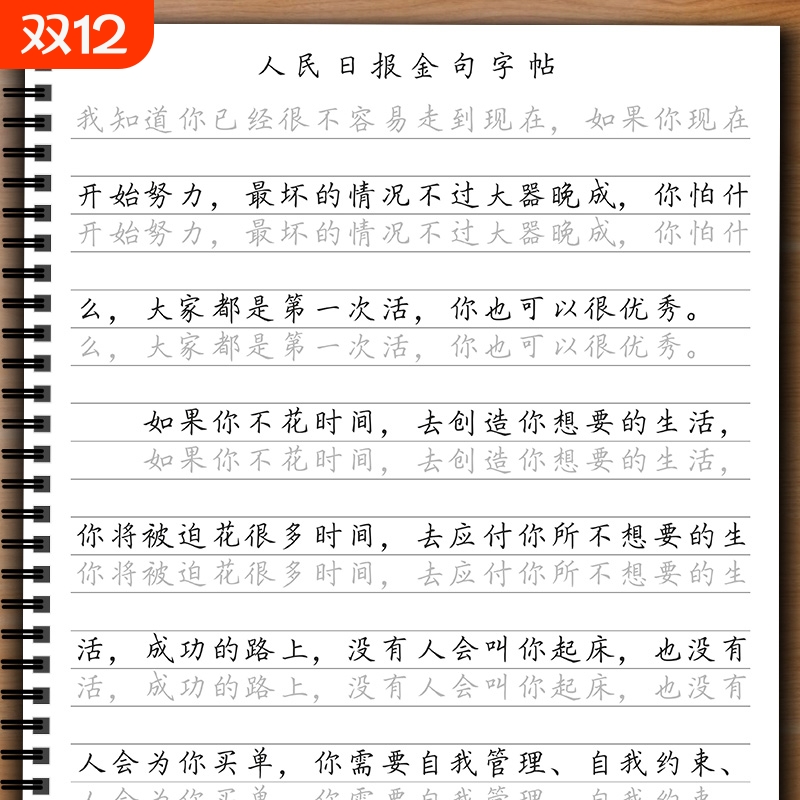 双12
人民日报金句字帖
我知道你已经很不容易走到现在，如果你现在
开始努力，最坏的情况不过大器晚成，你怕什
开始努力，最坏的情况不过大器晚成，你怕什
么，大家都是第一次活，你也可以很优秀。
么，大家都是第一次活，你也可以很优秀。
如果你不花时间，去创造你想要的生活，
如果你不花时间，去创造你想要的生活，
你将被迫花很多时间，去应付你所不想要的生
你将被迫花很多时间，去应付你所不想要的生
活，成功的路上，没有人会叫你起床，也没有
活，成功的路上，没有人会叫你起床，也没有
人会为你买单，你需要自我管理、自我约束、
人会为你买单，你需要自我管理、自我约束、